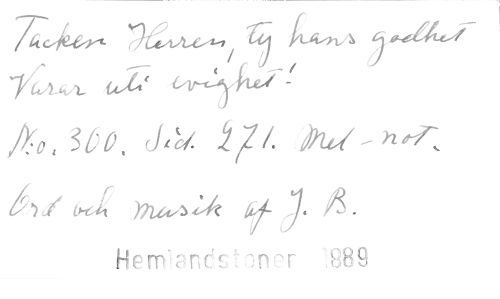 Tacken Herren, ty hans godhet
Varar uti evighet!
No. 300. Sid. 271. Mel-not.
Ord och musik af J. B.
Hemlandstoner 1889